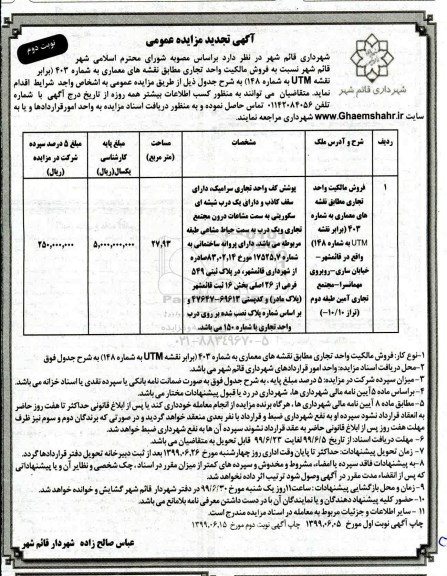 آگهی تجدید مزایده عمومی
نوبت دوم
شهرداری قائم شهر در نظر دارد براساس مصوبه شورای محترم اسلامی شهر
قائم شهر نسبت به فروش مالکیت واحد تجاری مطابق نقشه های معماری به شماره ۴۰۳ (برابر
نقشه UTM به شماره ۱۴۸) به شرح جدول ذیل از طریق مزایده عمومی به اشخاص واجد شرایط اقدام
نماید. متقاضیان می توانند به منظور کسب اطلاعات بیشتر همه روزه از تاریخ درج آگهی با شماره
تلفن ۰۱۱۴۲۰۸۴۰۵۶ تماس حاصل نموده و به منظور دریافت اسناد مزایده به واحد امورقراردادها و یا به
سایت www.Ghaemshahr.ir شهرداری مراجعه نمایند.
شهرداری قائم شهر
ردیف
شرح و آدرس ملک
مشخصات
مساحت
(متر مربع)
مبلغ پایه
کارشناسی
یکسال(ریال)
مبلغ ۵ درصد سپرده
شرکت در مزایده
(ریال)
۱
فروش مالکیت واحد
تجاری مطابق نقشه
های معماری به شماره
۴۰۳ (برابر نقشه
UTM به شماره ۱۴۸)
واقع در قائمشهر-
خیابان ساری-روبروی
مهمانسرا-مجتمع
تجاری آمین طبقه دوم
(تراز ۱۰/۱۰-)
پوشش کف واحد تجاری سرامیک، دارای
سقف کاذب و دارای یک درب شیشه ای
سکوریتی به سمت مشاعات درون مجتمع
تجاری ویک درب به سمت حیاط مشاعی طبقه
مربوطه می باشد. دارای پروانه ساختمانی به
شماره ۱۷۵۲۵,۷ مورخ ۸۳,۰۲,۱۴ صادره
از شهرداری قائمشهر، در پلاک ثبتی ۵۴۹
فرعی از ۲۶ اصلی بخش ۱۶ ثبت قائمشهر
(پلاک مادر) و کدپستی ۶۹۶۱۳-۴۷۶۴۷ و
بر اساس شماره پلاک نصب شده بر روی درب
واحد تجاری با شماره ۱۵۰ می باشد.
۲۷,۹۳
۵,۰۰۰,۰۰۰,۰۰۰
۲۵۰,۰۰۰,۰۰۰
۰۲۱-۸۸۳۴۹۶۷۰-۵
۱-نوع کار: فروش مالکیت واحد تجاری مطابق نقشه های معماری به شماره ۴۰۳ (برابر نقشه UTM به شماره ۱۴۸) به شرح جدول فوق
۲-محل دریافت اسناد مزایده: واحد امور قراردادهای شهرداری قائم شهر می باشد.
۳-میزان سپرده شرکت در مزایده: ۵ درصد مبلغ پایه، به شرح جدول فوق به صورت ضمانت نامه بانکی یا سپرده نقدی یا اسناد خزانه می باشد.
۴-براساس ماده ۵ آیین نامه مالی شهرداری ها، شهرداری در رد یا قبول پیشنهادات مختار می باشد.
۵-مطابق ماده ۸ آیین نامه مالی شهرداری ها ، هرگاه برنده مزایده از انجام معامله خودداری کند یا پس از ابلاغ قانونی حداکثر تا هفت روز حاضر
به انعقاد قرارداد نشود سپرده او به نفع شهرداری ضبط و قرارداد با نفر بعدی منعقد خواهد گردید و در صورتی که برندگان دوم و سوم نیز ظرف
مهلت هفت روز پس از ابلاغ قانونی حاضر به عقد قرارداد نشوند سپرده آن ها به نفع شهرداری ضبط خواهد شد.
۶- مهلت دریافت اسناد: از تاریخ ۹۹/۶/۵ لغایت ۹۹/۶/۲۳ قابل تحویل به متقاضیان می باشد.
۷- زمان تحویل پیشنهادات: حداکثر تا پایان وقت اداری روز چهارشنبه مورخ ۱۳۹۹.۰۶.۲۶ بعد از ثبت دبیرخانه تحویل دفتر قراردادها گردد.
۸-به پیشنهادات فاقد سپرده یا امضاء، مشروط و مخدوش و سپرده های کمتر از میزان مقرر در اسناد ، چک شخصی و نظایر آن و یا پیشنهاداتی
که پس از انقضاء مدت مقرر در آگهی وصول شود ترتیب اثر داده نخواهد شد.
۹- زمان و محل بازگشایی پیشنهادات: ساعت ۱۱ روز یک شنبه مورخ ۹۹/۶/۳۰ در دفتر شهردار قائم شهر گشایش و خوانده خواهد شد.
۱۰-حضور کلیه پیشنهاد دهندگان و یا نمایندگان آن با در دست داشتن معرفی نامه بلامانع می باشد.
۱۱ - سایر اطلاعات و جزئیات مربوط به معامله در اسناد مزایده مندرج است.
چاپ آگهی نوبت اول مورخ ۱۳۹۹.۰۶.۰۵ چاپ آگهی نوبت دوم مورخ ۱۳۹۹.۰۶.۱۵
عباس صالح زاده شهردار قائم شهر